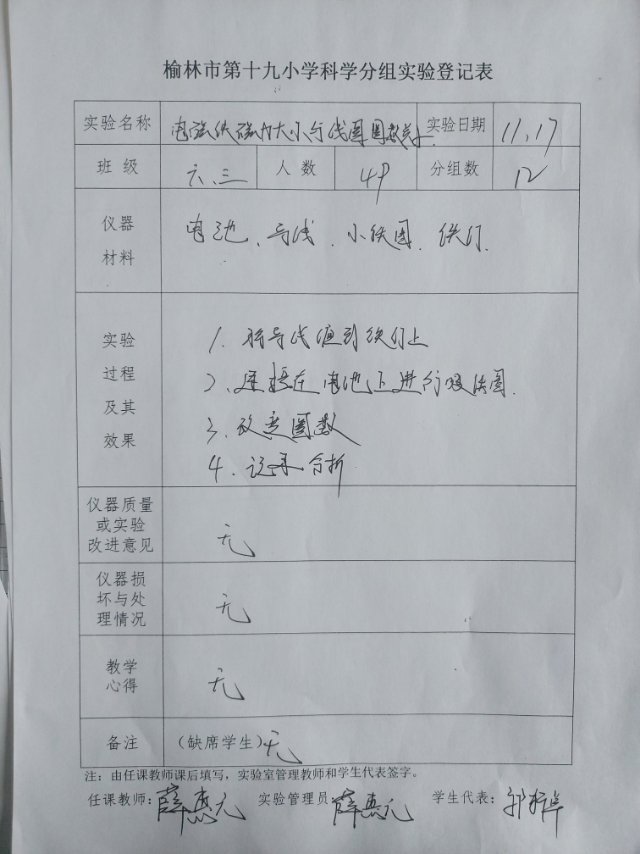 榆林市第十九小学科学分组实验登记表
实验名称 电磁铁磁力大小与线圈圈数关 实验日期 11.17
班级 六.三 人数 49 分组数 12
仪器材料 电池、导线、小铁圈、铁钉.
实验过程及其效果
1. 将导线 到铁钉上
2. 连接在电池上进行吸铁圈.
3. 改变圈数
4. 记录分析
仪器质量或实验改进意见 无
仪器损坏与处理情况 无
教学心得 无
备注 (缺席学生) 无
注：由任课教师课后填写，实验室管理教师和学生代表签字。
任课教师：薛惠元 实验管理员：薛惠元 学生代表：